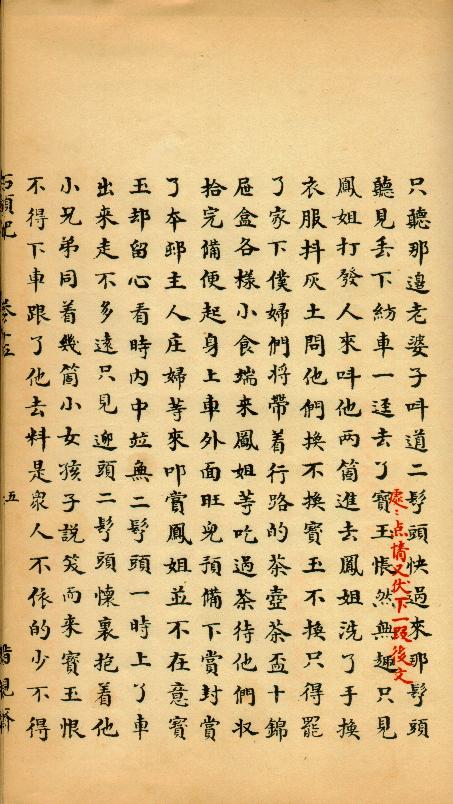 只聽那邊老婆子呌道二頭快過來那頭
聽見丢下紡車一逕去了寳玉悵然無趣只見
處〻点情又伏下一段後文
鳳姐打發人來呌他两箇進去鳳姐洗了手換
衣服抖灰土問他們換不換寳玉不換只得罷
了家下僕婦們將帶着行路的茶壺茶盃十錦
屉盒各樣小食端來鳳姐等吃過茶待他們収
拾完備便起身上車外面旺兒預備下賞封賞
了本邨主人庄婦等來叩賞鳳姐並不在意寳
玉却留心看時内中並無二頭一時上了車
出來走不多遠只見迎頭二頭懷裏抱着他
小兄弟同着幾箇小女孩子說笑而來寳玉恨
不得下車跟了他去料是衆人不依的少不得
石頭記 五